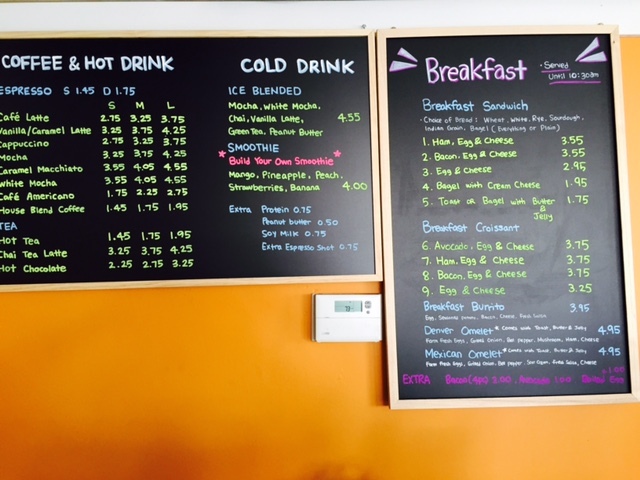 COFFEE & HOT DRINK
ESPRESSO S 1.45 D 1.75
S M L
Café Latte 2.75 3.25 3.75
Vanilla/Caramel Latte 3.25 3.75 4.25
Cappuccino 2.75 3.25 3.75
Mocha 3.25 3.75 4.25
Caramel Macchiato 3.55 4.05 4.55
White Mocha 3.55 4.05 4.55
Café Americano 1.75 2.25 2.75
House Blend Coffee 1.45 1.75 1.95
TEA
Hot Tea 1.45 1.75 1.95
Chai Tea Latte 3.25 3.75 4.25
Hot Chocolate 2.25 2.75 3.25
COLD DRINK
ICE BLENDED
Mocha, White Mocha,
Chai, Vanilla Latte, 4.55
Green Tea, Peanut Butter
SMOOTHIE
Build Your Own Smoothie
Mango, Pineapple, Peach,
Strawberries, Banana 4.00
Extra Protein 0.75
Peanut butter 0.50
Soy Milk 0.75
Extra Espresso Shot 0.75
Breakfast
• Served
Until 10:30am
Breakfast Sandwich
• Choice of Bread: Wheat, White, Rye, Sourdough,
Indian Grain, Bagel (Everything or Plain)
1. Ham, Egg & Cheese 3.55
2. Bacon, Egg & Cheese 3.55
3. Egg & Cheese 2.95
4. Bagel with Cream Cheese 1.95
5. Toast or Bagel with Butter & Jelly 1.75
Breakfast Croissant
6. Avocado, Egg & Cheese 3.75
7. Ham, Egg & Cheese 3.75
8. Bacon, Egg & Cheese 3.75
9. Egg & Cheese 3.25
Breakfast Burrito 3.95
Egg, Bacon, Cheese, Fresh Salsa
Denver Omelet * Comes with Toast, Butter & Jelly 4.95
Farm Fresh Eggs, Grilled Onion, Bell pepper, Mushroom, Ham, Cheese
Mexican Omelet * Comes with Toast, Butter & Jelly 4.95
Farm Fresh Eggs, Grilled Onion, Bell pepper, Sour Cream, Fresh Salsa, Cheese
EXTRA Bacon 2.00, Avocado 1.00 Egg 1.00